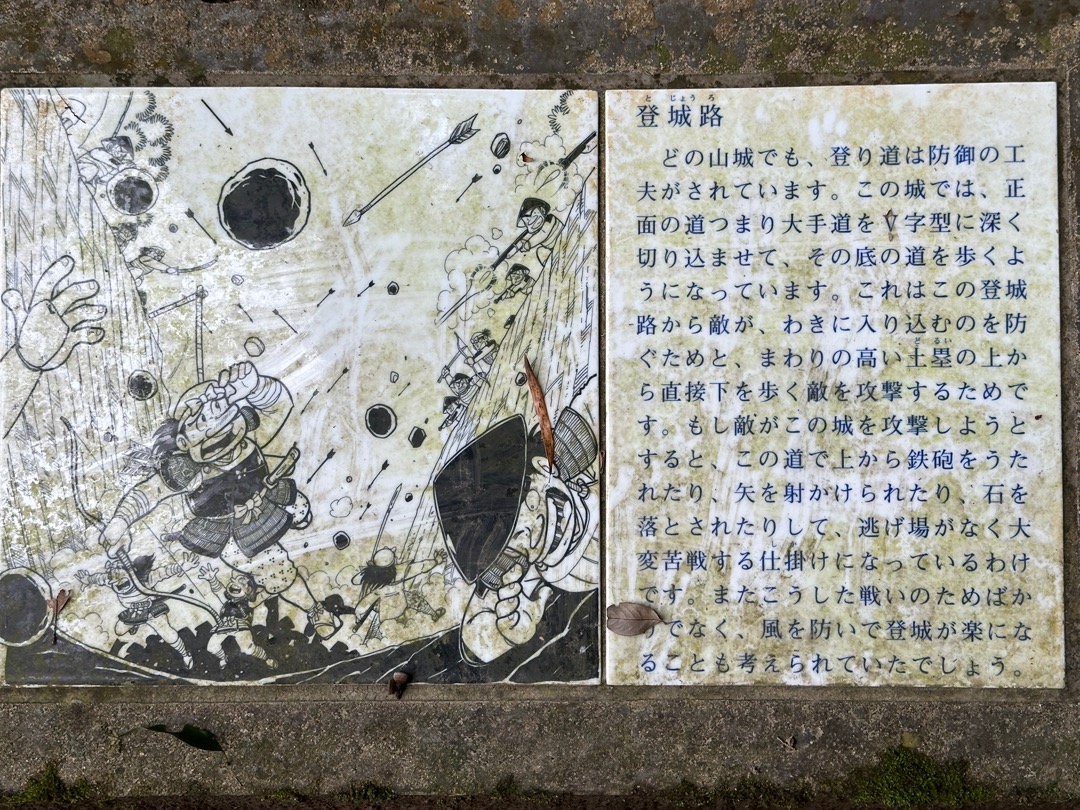 と じょう ろ
登城路
どの山城でも、登り道は防御の工
夫がされています。この城では、正
面の道つまり大手道をV字型に深く
切り込ませて、その底の道を歩くよ
うになっています。これはこの登城
路から敵が、わきに入り込むのを防
ど るい
ぐためと、まわりの高い土塁の上か
ら直接下を歩く敵を攻撃するためで
す。もし敵がこの城を攻撃しようと
すると、この道で上から鉄砲をうた
れたり、矢を射かけられたり、石を
落とされたりして、逃げ場がなく大
変苦戦する仕掛けになっているわけ
です。またこうした戦いのためばか
りでなく、風を防いで登城が楽にな
ることも考えられていたでしょう。